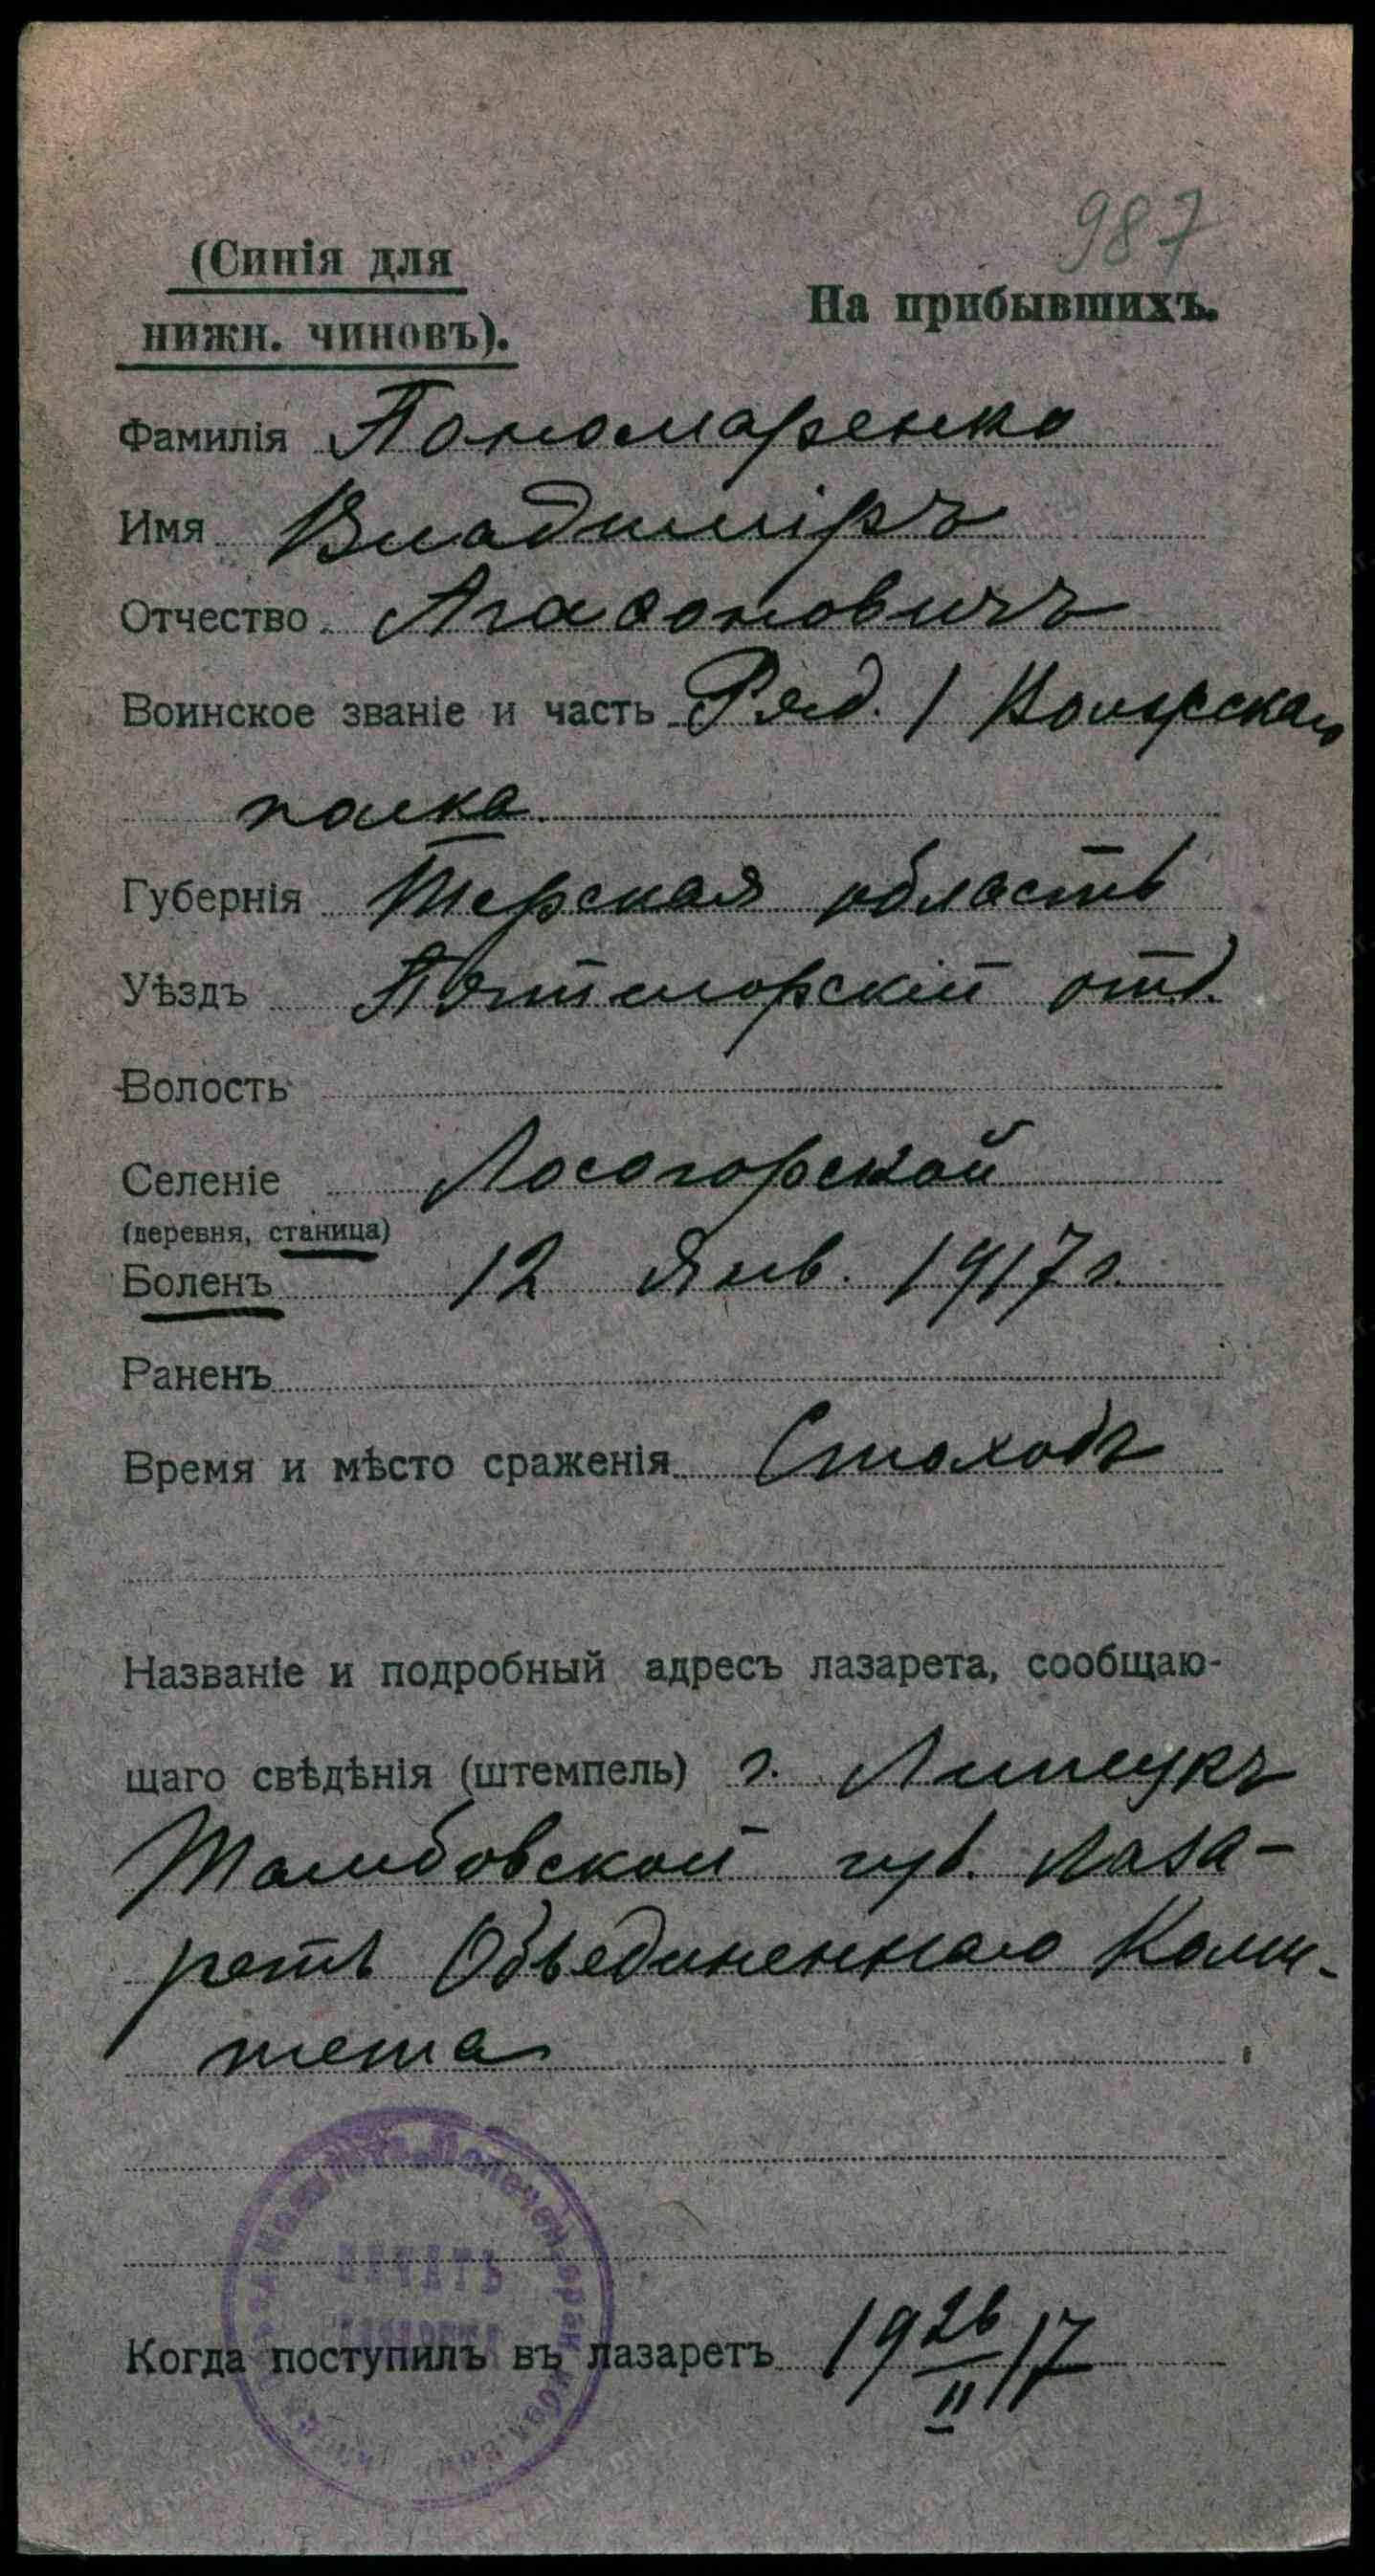 987
(Синія для
нижн. чиновъ).
На прибывшихъ.
Фамилія Пономаренко
Имя Владиміръ
Отчество Агафоновичъ
Воинское званіе и часть Ряд. 1 Волгскаго
полка
Губернія Терская область
Уѣздъ Пятигорскій отд.
Волость
Селеніе Лосогорской
(деревня, станица)
Боленъ 12 Янв. 1917 г.
Раненъ
Время и мѣсто сраженія Стоходъ
Названіе и подробный адресъ лазарета, сообщаю-
щаго свѣдѣнія (штемпель) г. Липецкъ
Тамбовской губ. Лаза-
ретъ Объединеннаго Коми-
тета
ПЕЧАТЬ
Когда поступилъ въ лазаретъ 19 26/II 17